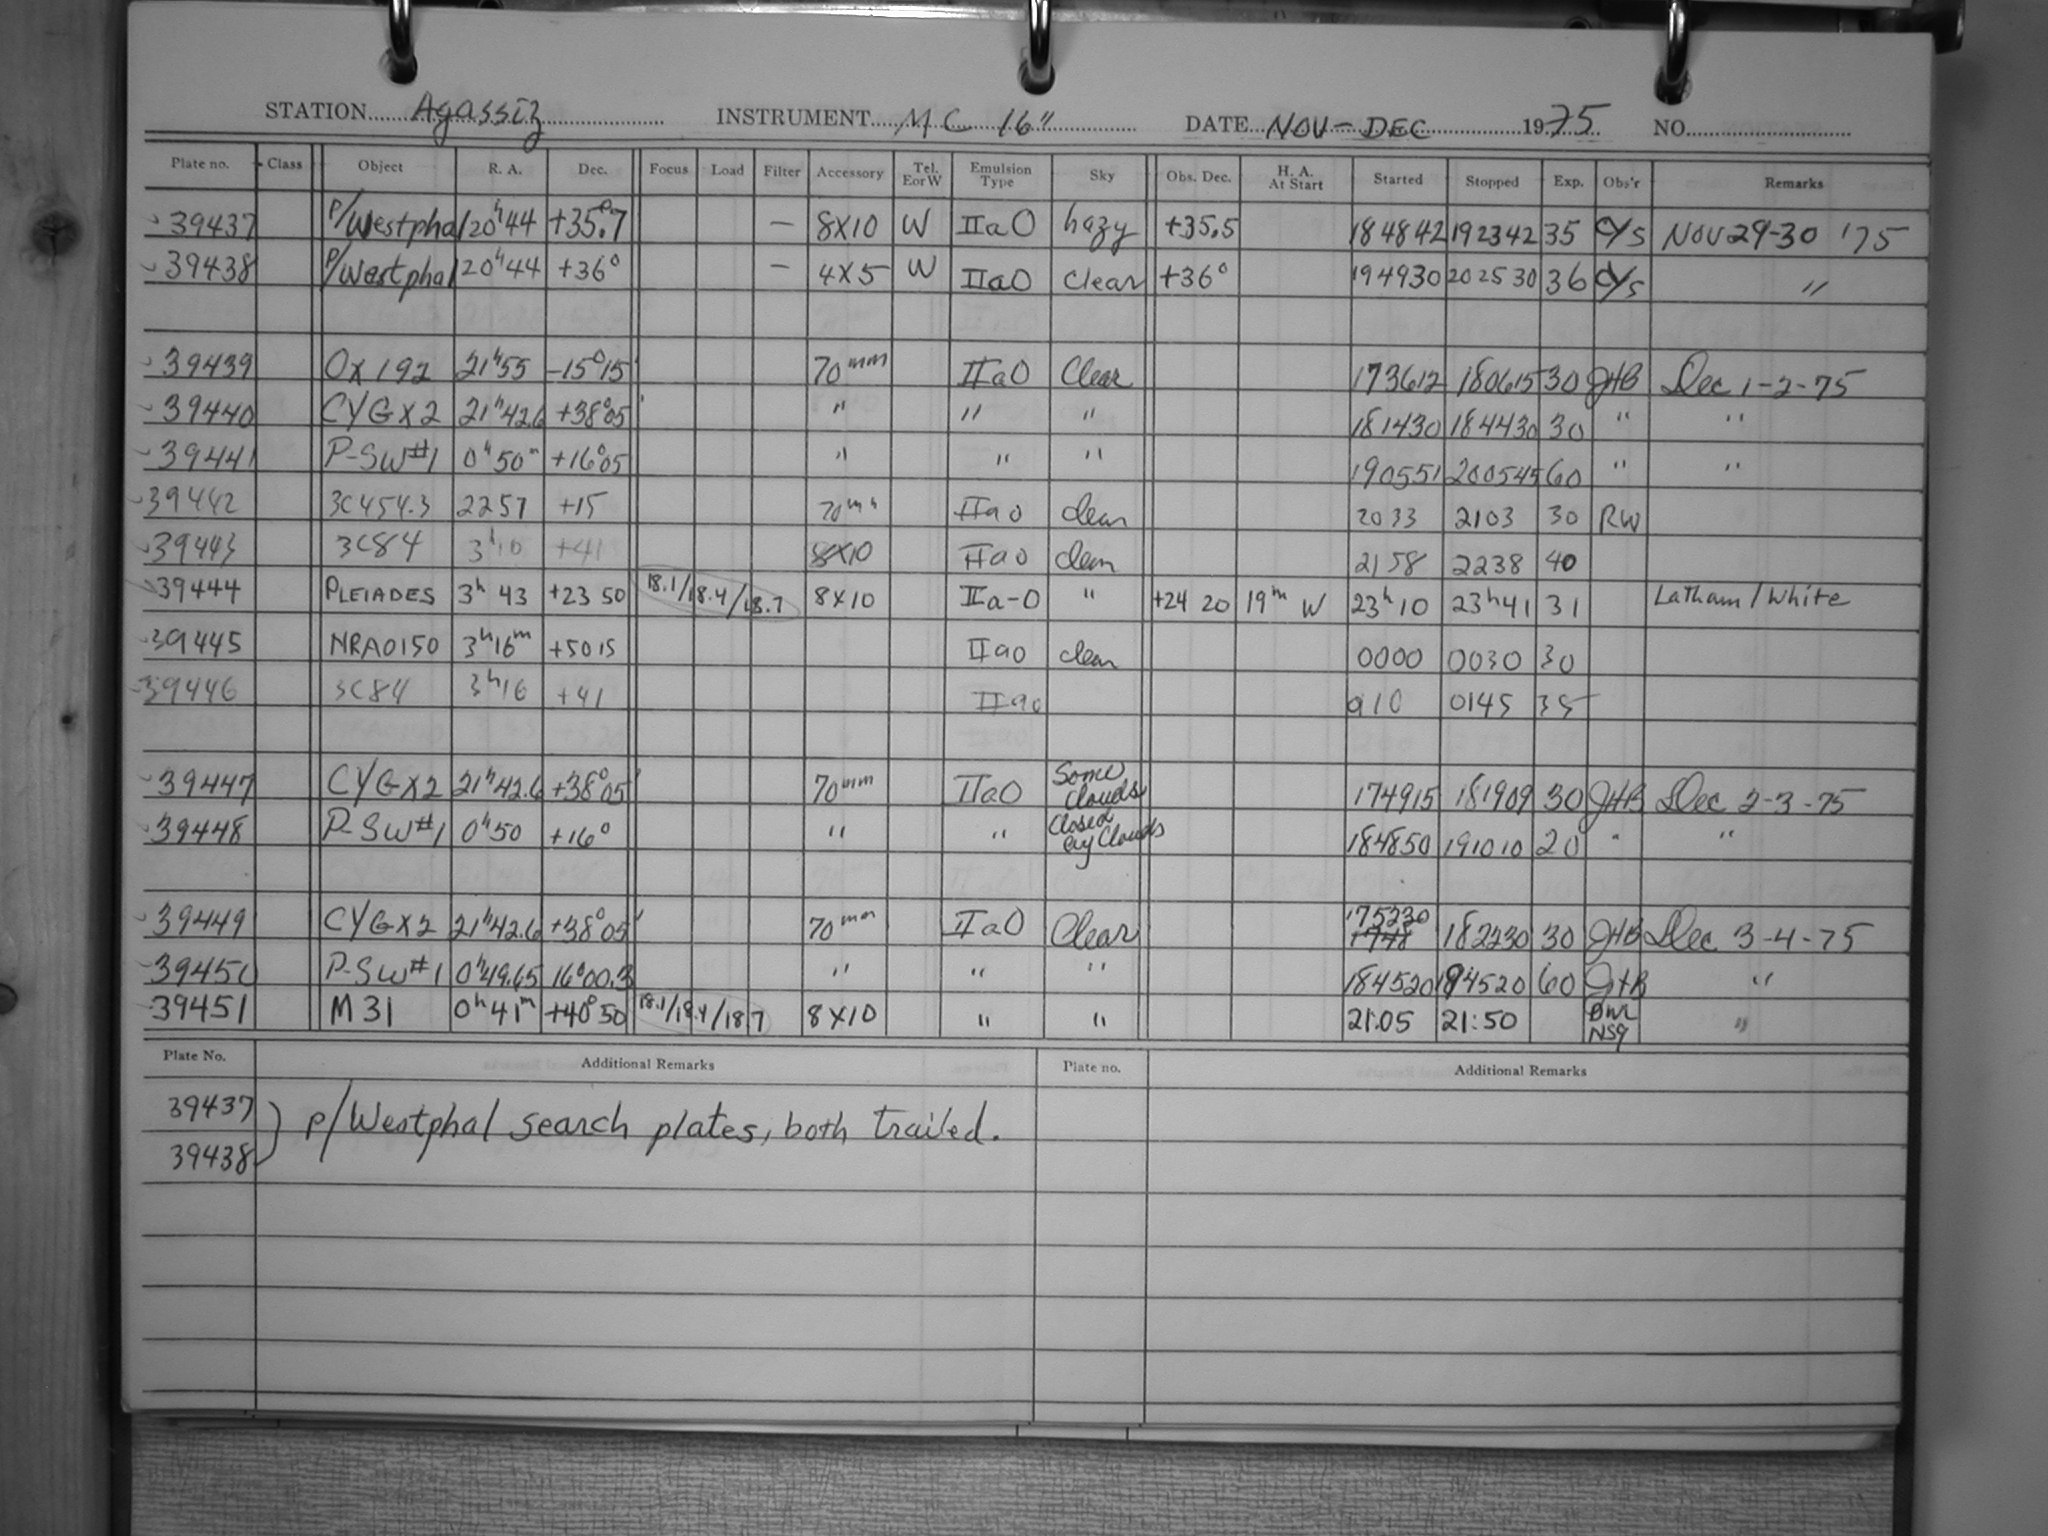 STATION Agassiz INSTRUMENT MC 16" DATE NOV-DEC 1975 NO.
Plate no. Class Object R. A. Dec. Focus Load Filter Accessory Tel. E or W Emulsion Type Sky Obs. Dec. H. A. At Start Started Stopped Exp. Obs'r Remarks
39437 P/Westphal 20h44 +35°.7 — 8X10 W IIaO hazy +35.5 184842 192342 35 CYS NOV 29-30 '75
39438 P/Westphal 20h44 +36° — 4X5 W IIaO Clear +36° 194930 202530 36 CYS "
39439 OX 192 21h55 -15°15' 70mm IIaO Clear 173612 180615 30 JHB Dec 1-2-75
39440 CYGX2 21h42.6 +38°05' " " " 181430 184430 30 " "
39441 P-SW#1 0h50m +16°05 " " " 190551 200545 60 " "
39442 3C454.3 2257 +15 70mm IIaO clear 2033 2103 30 RW
39443 3C84 3h10 +41 8X10 IIaO clear 2158 2238 40
39444 PLEIADES 3h 43 +23 50 18.1/18.4/18.7 8X10 IIa-O " +24 20 19m W 23h10 23h41 31 Latham/White
39445 NRAO150 3h16m +5015 IIaO clear 0000 0030 30
39446 3C84 3h16 +41 IIaO 0110 0145 35
39447 CYGX2 21h42.6 +38°05' 70mm IIaO Some Clouds 174915 181909 30 JHB Dec 2-3-75
39448 P-SW#1 0h50 +16° " " Closed by Clouds 184850 191010 20 " "
39449 CYGX2 21h42.6 +38°05' 70mm IIaO Clear 175230 1748 182230 30 JHB Dec 3-4-75
39450 P-SW#1 0h49.65 16°00.3 " " " 184520 194520 60 JHB "
39451 M31 0h41m +40°50 18.1/18.4/18.7 8X10 " " 21:05 21:50 "
Plate No. Additional Remarks Plate no. Additional Remarks
39437 } P/Westphal search plates, both trailed.
39438